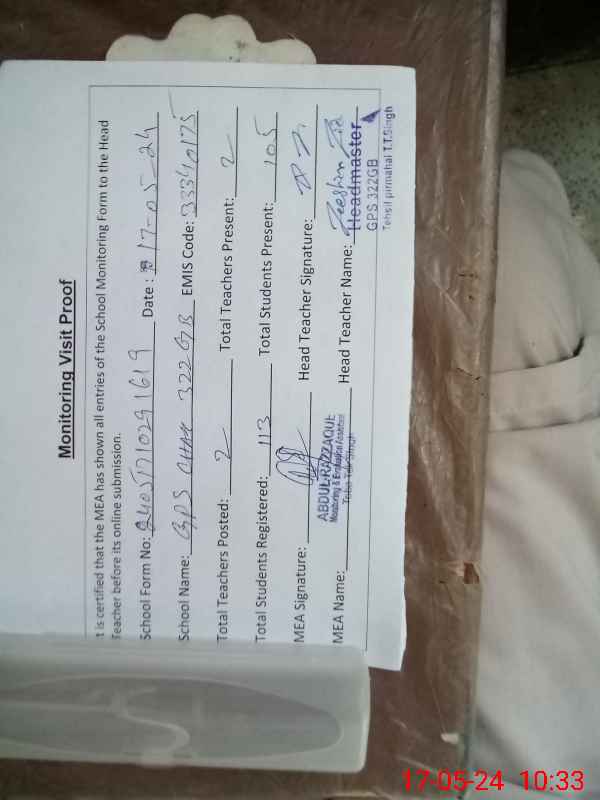 Monitoring Visit Proof
t is certified that the MEA has shown all entries of the School Monitoring Form to the Head
Teacher before its online submission.
School Form No: 24051710291619 Date : 17-05-24
School Name: GPS CHAK 322 GB EMIS Code: 33340175
Total Teachers Posted: 2 Total Teachers Present: 2
Total Students Registered: 113 Total Students Present: 105
MEA Signature: Head Teacher Signature:
ABDUL RAZZAQUE
Monitoring & Evaluation Assistant
Toba Tek Singh
MEA Name: Head Teacher Name: Zeeshan Zia
Headmaster
GPS 322GB
Tehsil pirmahal T.T.Singh
17-05-24 10:33